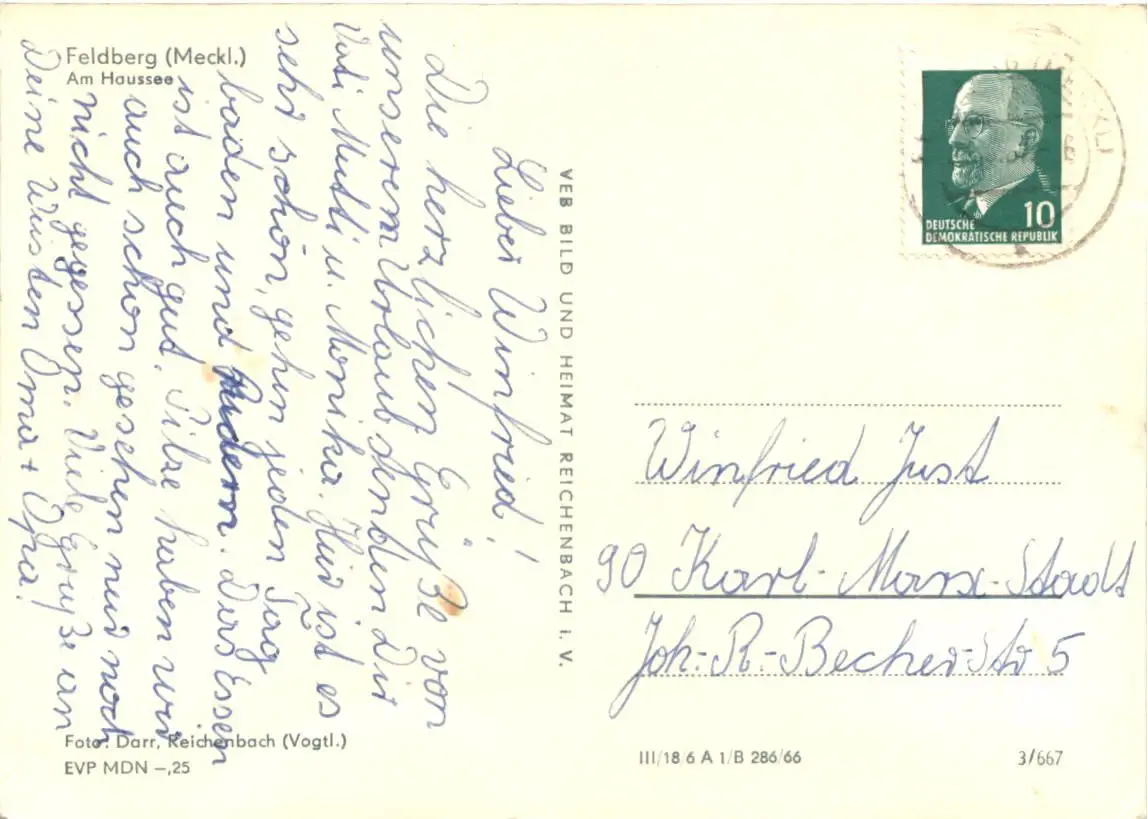 Feldberg (Meckl.)
Am Haussee
Lieber Winfried!
Die herzlichen Grüße von
unserem Urlaub senden Dir
Vati Mutti u. Monika. Hier ist es
sehr schön, gehen jeden Tag
baden und rudern. Das Essen
ist auch gut. Pilze haben wir
auch schon gesehen nur noch
nicht gegessen. Viele Grüße an
Deine Oma + Opa!
VEB BILD UND HEIMAT REICHENBACH i. V.
DEUTSCHE
DEMOKRATISCHE REPUBLIK
10
Winfried Just
90 Karl-Marx-Stadt
Joh.-R.-Becher-Str 5
Foto: Darr, Reichenbach (Vogtl.)
EVP MDN –,25
III/18/6 A 1/B 286/66
3/667